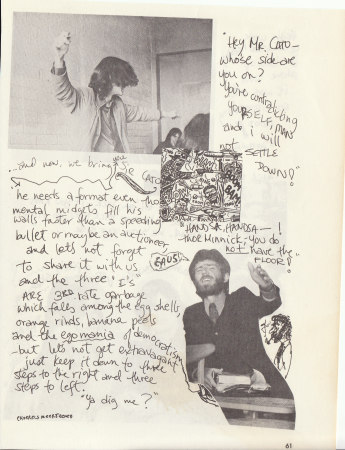 "Hey Mr. Cato –
whose side are
you on?
You're contradicting
yourself, man
and i will
not settle
down!"
...and now, we bring you
Sir CATO
he needs a format even tho
mental midgets fill his
walls faster than a speeding
bullet or maybe an auctioneer
and let's not forget
to share it with us
and the three "I's"
are 3rd rate garbage
which falls among the egg shells,
orange rinds, banana peels
and the egomania of democratism
– but let's not get extravagant
just keep it down to three
steps to the right and three
steps to left.
"Ya dig me?"
HANDSA, HANDSA – !
Minnick, you do
not have the
FLOOR!"
61